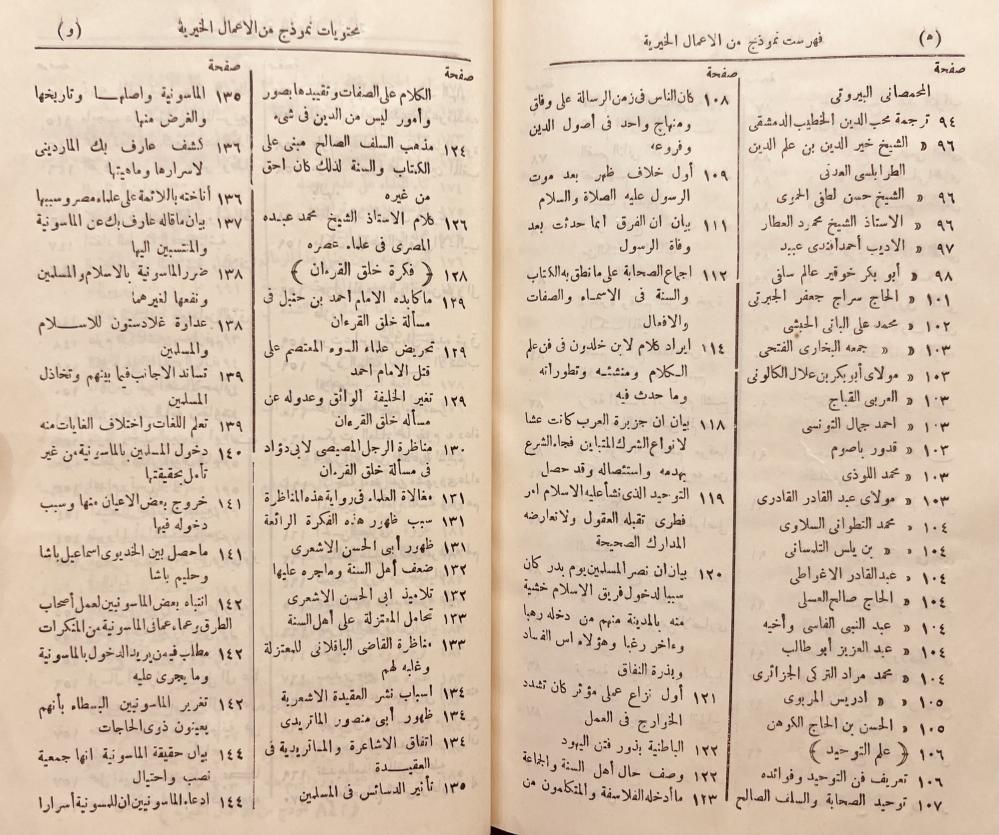 (٥) فهرست نموذج من الاعمال الخيرية
صفحة
المحمصانى البيروتى
٩٤ ترجمة محب الدين الخطيب الدمشقى
٩٦ « الشيخ خير الدين بن علم الدين
الطرابلسى المدنى
٩٦ « الشيخ حسن لطفى الحموى
٩٦ « الاستاذ الشيخ محمود العطار
٩٧ « الاديب أحمد أفندى عبيد
٩٨ « أبو بكر خوقير عالم سافى
١٠١ « الحاج سراج جعفر الجبرتى
١٠٢ « محمد على البانى الحبشى
١٠٣ « « جمعه البخارى الفتحى
١٠٣ « مولاى أبو بكر بن علال الكالونى
١٠٣ « العربى القباج
١٠٣ « احمد جمال التونسى
١٠٣ « قدور باصوم
١٠٣ « محمد اللوذى
١٠٣ « مولاى عبد القادر القادرى
١٠٤ « محمد التطوانى السلاوى
١٠٤ « « بن يلس التلمسانى
١٠٤ « عبد القادر الاغراطى
١٠٤ « الحاج صالح العسلى
١٠٤ « عبد النبى الفاسى وأخيه
١٠٤ « عبد العزيز أبو طالب
١٠٤ « محمد مراد التركى الجزائرى
١٠٥ « « ادريس المربوى
١٠٥ « الحسن بن الحاج الكوهن
١٠٦ ﴿ علم التوحيد ﴾
١٠٦ تعريف فن التوحيد وفوائده
١٠٧ توحيد الصحابة والسلف الصالح
صفحة
١٠٨ كان الناس فى زمن الرسالة على وفاق
ومنهاج واحد فى أصول الدين
وفروعه
١٠٩ أول خلاف ظهر بعد موت
الرسول عليه الصلاة والسلام
١١١ بيان ان الفرق انما حدثت بعد
وفاة الرسول
١١٢ اجماع الصحابة على ما نطق به الكتاب
والسنة فى الاسماء والصفات
والافعال
١١٤ ايراد كلام لابن خلدون فى فن علم
الكلام ومنشئه وتطوراته
وما حدث فيه
١١٨ بيان ان جزيرة العرب كانت عشا
لانواع الشرك المتباين فجاء الشرع
بهدمه واستئصاله وقد حصل
١١٩ التوحيد الذى نشأ عليه الاسلام امر
فطرى تقبله العقول ولا تعارضه
المدارك الصحيحة
١٢٠ بيان ان نصر المسلمين يوم بدر كان
سببا لدخول فريق الاسلام خشية
منه بالمدينة منهم من دخله رهبا
وءاخر رغبا وهؤلاء اس الفساد
وبذرة النفاق
١٢١ أول نزاع عملى مؤثر كان تشدد
الخوارج فى العمل
١٢٢ الباطنية بذور فتن اليهود
١٢٢ وصف حال أهل السنة والجماعة
١٢٣ ما أدخله الفلاسفة والمتكلمون من
محتويات نموذج من الاعمال الخيرية (و)
صفحة
الكلام على الصفات وتقييدها بصور
وأمور ليس من الدين فى شىء
١٢٤ مذهب السلف الصالح مبنى على
الكتاب والسنة لذلك كان احق
من غيره
١٢٦ كلام الاستاذ الشيخ محمد عبده
المصرى فى علماء عصره
١٢٨ ﴿ فكرة خلق القرءان ﴾
١٢٩ ما كابده الامام أحمد بن حنبل فى
مسألة خلق القرءان
١٢٩ تحريض علماء السوء المعتصم على
قتل الامام احمد
١٢٩ تغير الخليفة الواثق وعدوله عن
مسأله خلق القرءان
١٣٠ مناظرة الرجل المصيصى لابى دؤاد
فى مسألة خلق القرءان
١٣١ مغالاة العلماء فى رواية هذه المناظرة
١٣١ سبب ظهور هذه الفكرة الرائعة
١٣١ ظهور أبى الحسن الاشعرى
١٣٢ ضعف أهل السنة وما جره عليها
١٣٢ تلاميذ ابى الحسن الاشعرى
١٣٣ تحامل المعتزلة على أهل السنة
١٣٣ مناظرة القاضى الباقلانى للمعتزلة
وغلبه لهم
١٣٤ اسباب نشر العقيدة الاشعرية
١٣٤ ظهور أبى منصور الماتريدى
١٣٤ اتفاق الاشاعرة والماتريدية فى
العقيدة
١٣٥ تأثير الدسائس فى المسلمين
صفحة
١٣٥ الماسونية واصلها وتاريخها
والغرض منها
١٣٦ كشف عارف بك الماردينى
لاسرارها وماهيتها
١٣٦ أناخته بالائمة على علماء مصر وسببها
١٣٧ بيان ما قاله عارف بك عن الماسونية
والمنتسبين اليها
١٣٨ ضرر الماسونية بالاسلام والمسلمين
ونفعها لغيرهما
١٣٨ عداوة غلادستون للاسلام
والمسلمين
١٣٩ تساند الاجانب فيما بينهم وتخاذل
المسلمين
١٣٩ تعلم اللغات واختلاف الغايات منه
١٤٠ دخول المسلمين بالماسونية من غير
تأمل بحقيقتها
١٤١ خروج بعض الاعيان منها وسبب
دخوله فيها
١٤١ ما حصل بين الخديوى اسماعيل باشا
وحليم باشا
١٤٢ انتباه بعض الماسونيين لعمل أصحاب
الطرق وعماء عمانى الماسونية من المنكرات
١٤٢ مطلب فيمن يريد الدخول بالماسونية
وما يجرى عليه
١٤٢ تغرير الماسونيين البسطاء بأنهم
يعينون ذوى الحاجات
١٤٤ بيان حقيقة الماسونية انها جمعية
نصب واحتيال
١٤٤ ادعاء الماسونيين ان للمسونية أسرارا